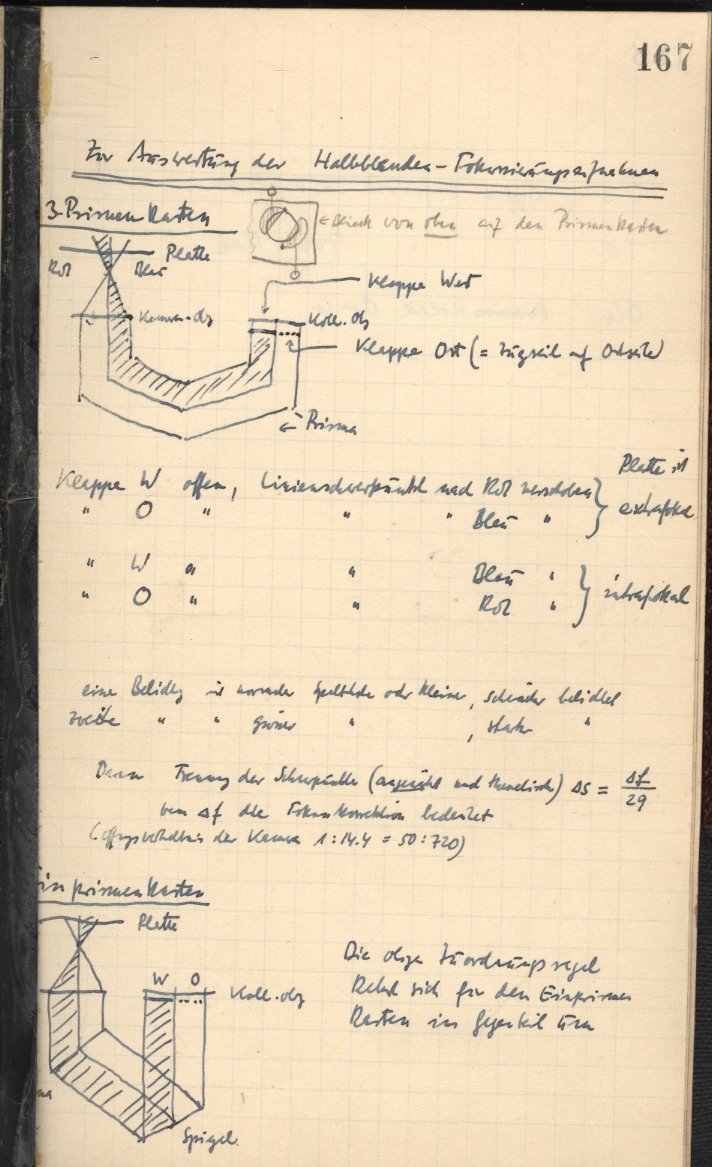 167
Zur Auswertung der Halbblenden-Fokussierungsaufnahmen
3-Prismenkasten
← Blick von oben auf den Prismenkasten
Rot Platte
Blau
Klappe West
Kamera-Obj Koll.-Obj
Klappe Ort (= Zugseil auf Ortseite)
← Prisma
Klappe W offen, Linienschwerpunkt nach Rot verschoben } Platte ist
" O " " " Blau " } extrafokal
" W " " Blau " } intrafokal
" O " " Rot "
eine Belichtg mit normaler Spaltbreite oder kleiner, schwächer belichtet
zweite " " grösser " , stärker "
Dann Trennung der Schwerpunkte (angenähert und theoretisch) Δs = Δf/29
wenn Δf die Fokuskorrektion bedeutet
(Öffngsverhältnis der Kamera 1:14.4 = 50:720)
Einprismenkasten
Platte
W O
Koll-Obj
Die obige Zuordnungsregel
kehrt sich für den Einprismen
Kasten ins Gegenteil um
Spiegel